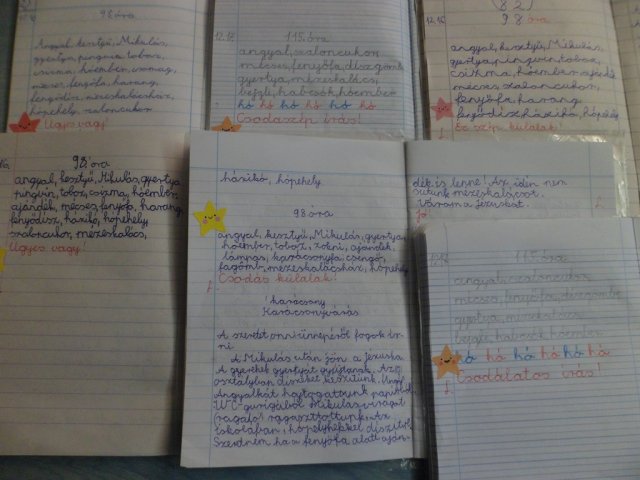 98. óra
Angyal, kesztyű, Mikulás,
gyertya, pingvin, toboz,
csizma, hóember, csomag,
mécses, fenyőfa, harang,
fenyődísz, mézeskalácsház
hópehely, szaloncukor
Ügyes vagy!
12.15. 115. óra
angyal, szaloncukor
mécses, fenyőfa, díszgömb
gyertya, mézeskalács,
bejgli, habcsók, hóember
hó hó hó hó hó hó
Csodaszép írás!
(82)
12.12. 98 óra
angyal, kesztyű, Mikulás,
gyertya, pingvin, toboz,
csizma, hóember, ajándék
mécses, szaloncukor,
fenyőfa, harang
házikó, hópehely
De szép külalak!
98. óra
angyal, kesztyű, Mikulás, gyertya
pingvin, toboz, csizma, hóember
ajándék, mécses, fenyőfa, harang,
fenyődísz, házikó, hópehely,
szaloncukor, mézeskalács,
Ügyes vagy!
házikó, hópehely
98 óra
angyal, kesztyű, Mikulás, gyertya,
hóember, toboz, zokni, ajándék,
lámpás, karácsonyfa, csengő,
fagömb, mézeskalácsház, hópehely
Csodás külalak!
karácsony
Karácsonyvárás
A szeretet ünnepéről fogok ír-
ni.
A Mikulás után jön a jézuska.
A gyerekek gyertyát gyújtanak. Az
osztályban díszeket készítünk.
Angyalkát hajtogattunk papírból,
WC-gurigából Mikulás virágot
ragasztottunk. Az
iskolában, hópelyhekkel díszített
Szeretném ha a fenyőfa alatt aján-
dék is lenne! Az idén nem
sütünk mézeskalácsot.
Várom a Jézuskát.
Jó!
12.15. 115. óra
angyal, szaloncukor
mécses, fenyőfa, díszgömb
gyertya, mézeskalács
bejgli, habcsók, hóember
hó hó hó hó hó hó
Csodálatos írás!